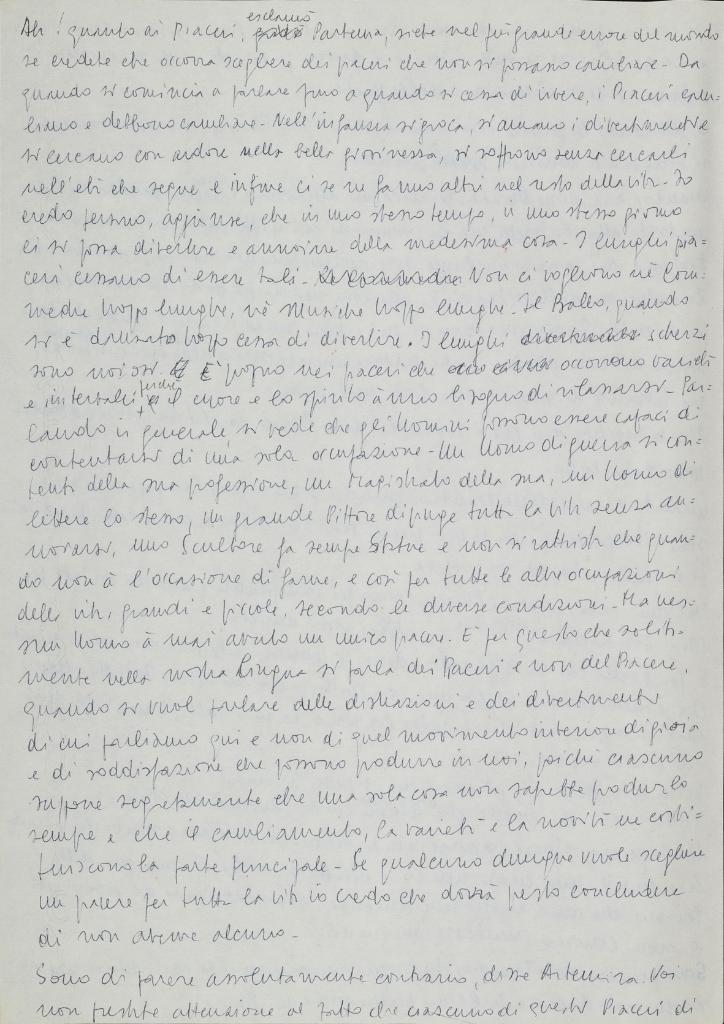 esclamò
Ah! quanto ai Piaceri, Partema, siete nel più grande errore del mondo
se credete che occorra scegliere dei piaceri che non si possano cambiare - Da
quando si comincia a parlare fino a quando si cessa di vivere, i Piaceri cam=
biano e debbono cambiare - Nell'infanzia si gioca, si amano i divertimenti e
si cercano con ardore nella bella giovinezza, si soffrono senza cercarli
nell'età che segue e infine ci se ne fanno altri nel resto della vita - Io
credo persino, aggiunse, che in uno stesso tempo, in uno stesso giorno
ci si possa divertire e annoiare della medesima cosa - I lunghi pia=
ceri cessano di essere tali - Non ci vogliono nè Com=
medie troppo lunghe, nè Musiche troppo lunghe - Il Ballo, quando
si è danzato troppo cessa di divertire. I lunghi scherzi
sono noiosi. È proprio nei piaceri che occorrono varietà
e intervalli perché il cuore e lo spirito ànno bisogno di rilassarsi - Par=
lando in generale si vede che gli Uomini possono essere capaci di
contentarsi di una sola occupazione - Un Uomo di guerra si con=
tenta della sua professione, un Magistrato della sua, un Uomo di
lettere lo stesso, un grande Pittore dipinge tutta la vita senza an=
noiarsi, uno Scultore fa sempre Statue e non si rattrista che quan=
do non à l'occasione di farne, e così per tutte le altre occupazioni
della vita, grandi e piccole, secondo le diverse condizioni - Ma nes=
sun Uomo à mai avuto un unico piacere. È per questo che solita=
mente nella nostra Lingua si parla dei Piaceri e non del Piacere,
quando si vuol parlare delle distrazioni e dei divertimenti
di cui parliamo qui e non di quel movimento interiore di gioia
e di soddisfazione che possono produrre in noi, poiché ciascuno
suppone segretamente che una sola cosa non saprebbe produrlo
sempre e che il cambiamento, la varietà e la novità ne costi=
tuiscono la parte principale - Se qualcuno dunque vuole scegliere
un piacere per tutta la vita io credo che dovrà presto concludere
di non averne alcuno -
Sono di parere assolutamente contrario, disse Artemira. Voi
non prestate attenzione al fatto che ciascuno di questi Piaceri di